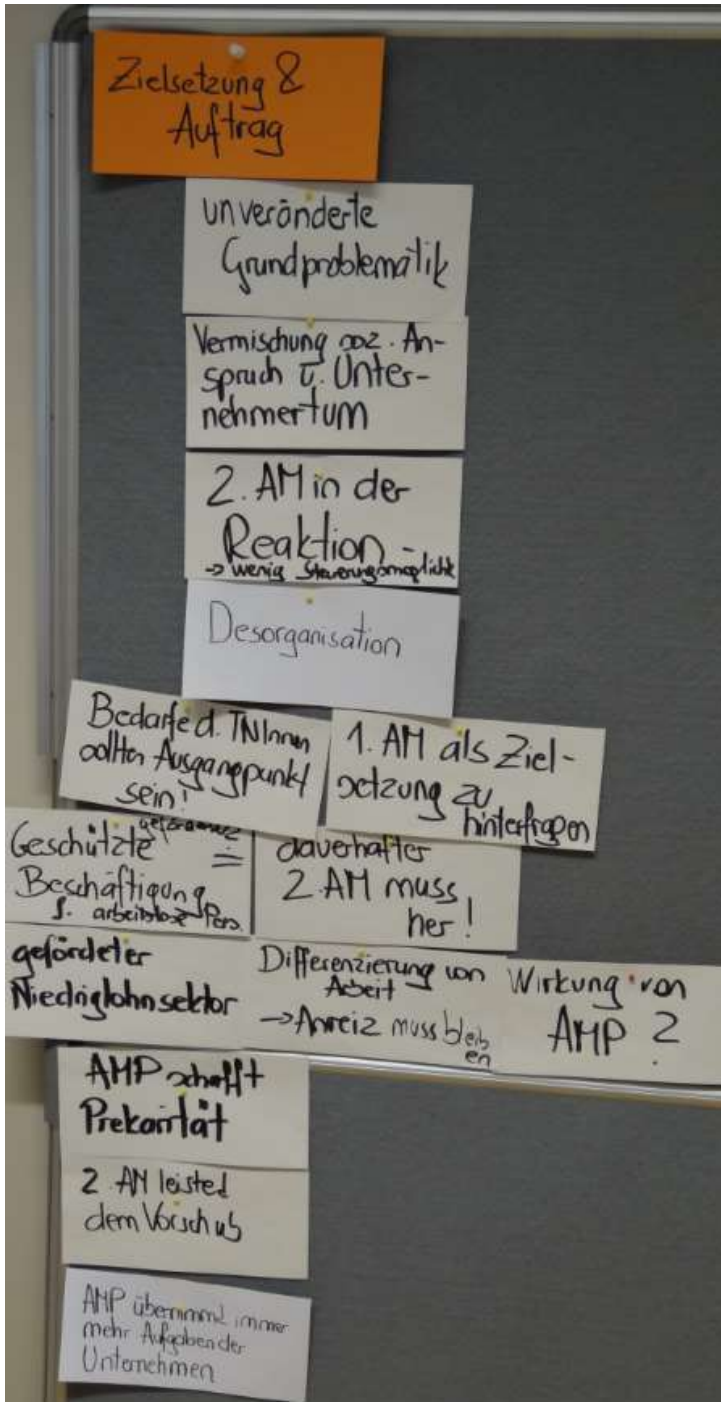 Zielsetzung &
Auftrag
unveränderte
Grundproblematik
Vermischung soz. An-
spruch u. Unter-
nehmertum
2. AM in der
Reaktion -
→ wenig Steuerungsmöglichk
Desorganisation
Bedarfe d. TNInnen
sollten Ausgangpunkt
sein!
1. AM als Ziel-
setzung zu
hinterfragen
Geschützte
Beschäftigung
f. arbeitslose Pers.
=
dauerhafter
2. AM muss
her!
geförderter
Niedriglohnsektor
Differenzierung von
Arbeit
→ Anreiz muss bleib
en
Wirkung von
AMP ?
AMP schafft
Prekarität
2 AM leisted
dem Vorschub
AMP übernimmt immer
mehr Aufgaben der
Unternehmen